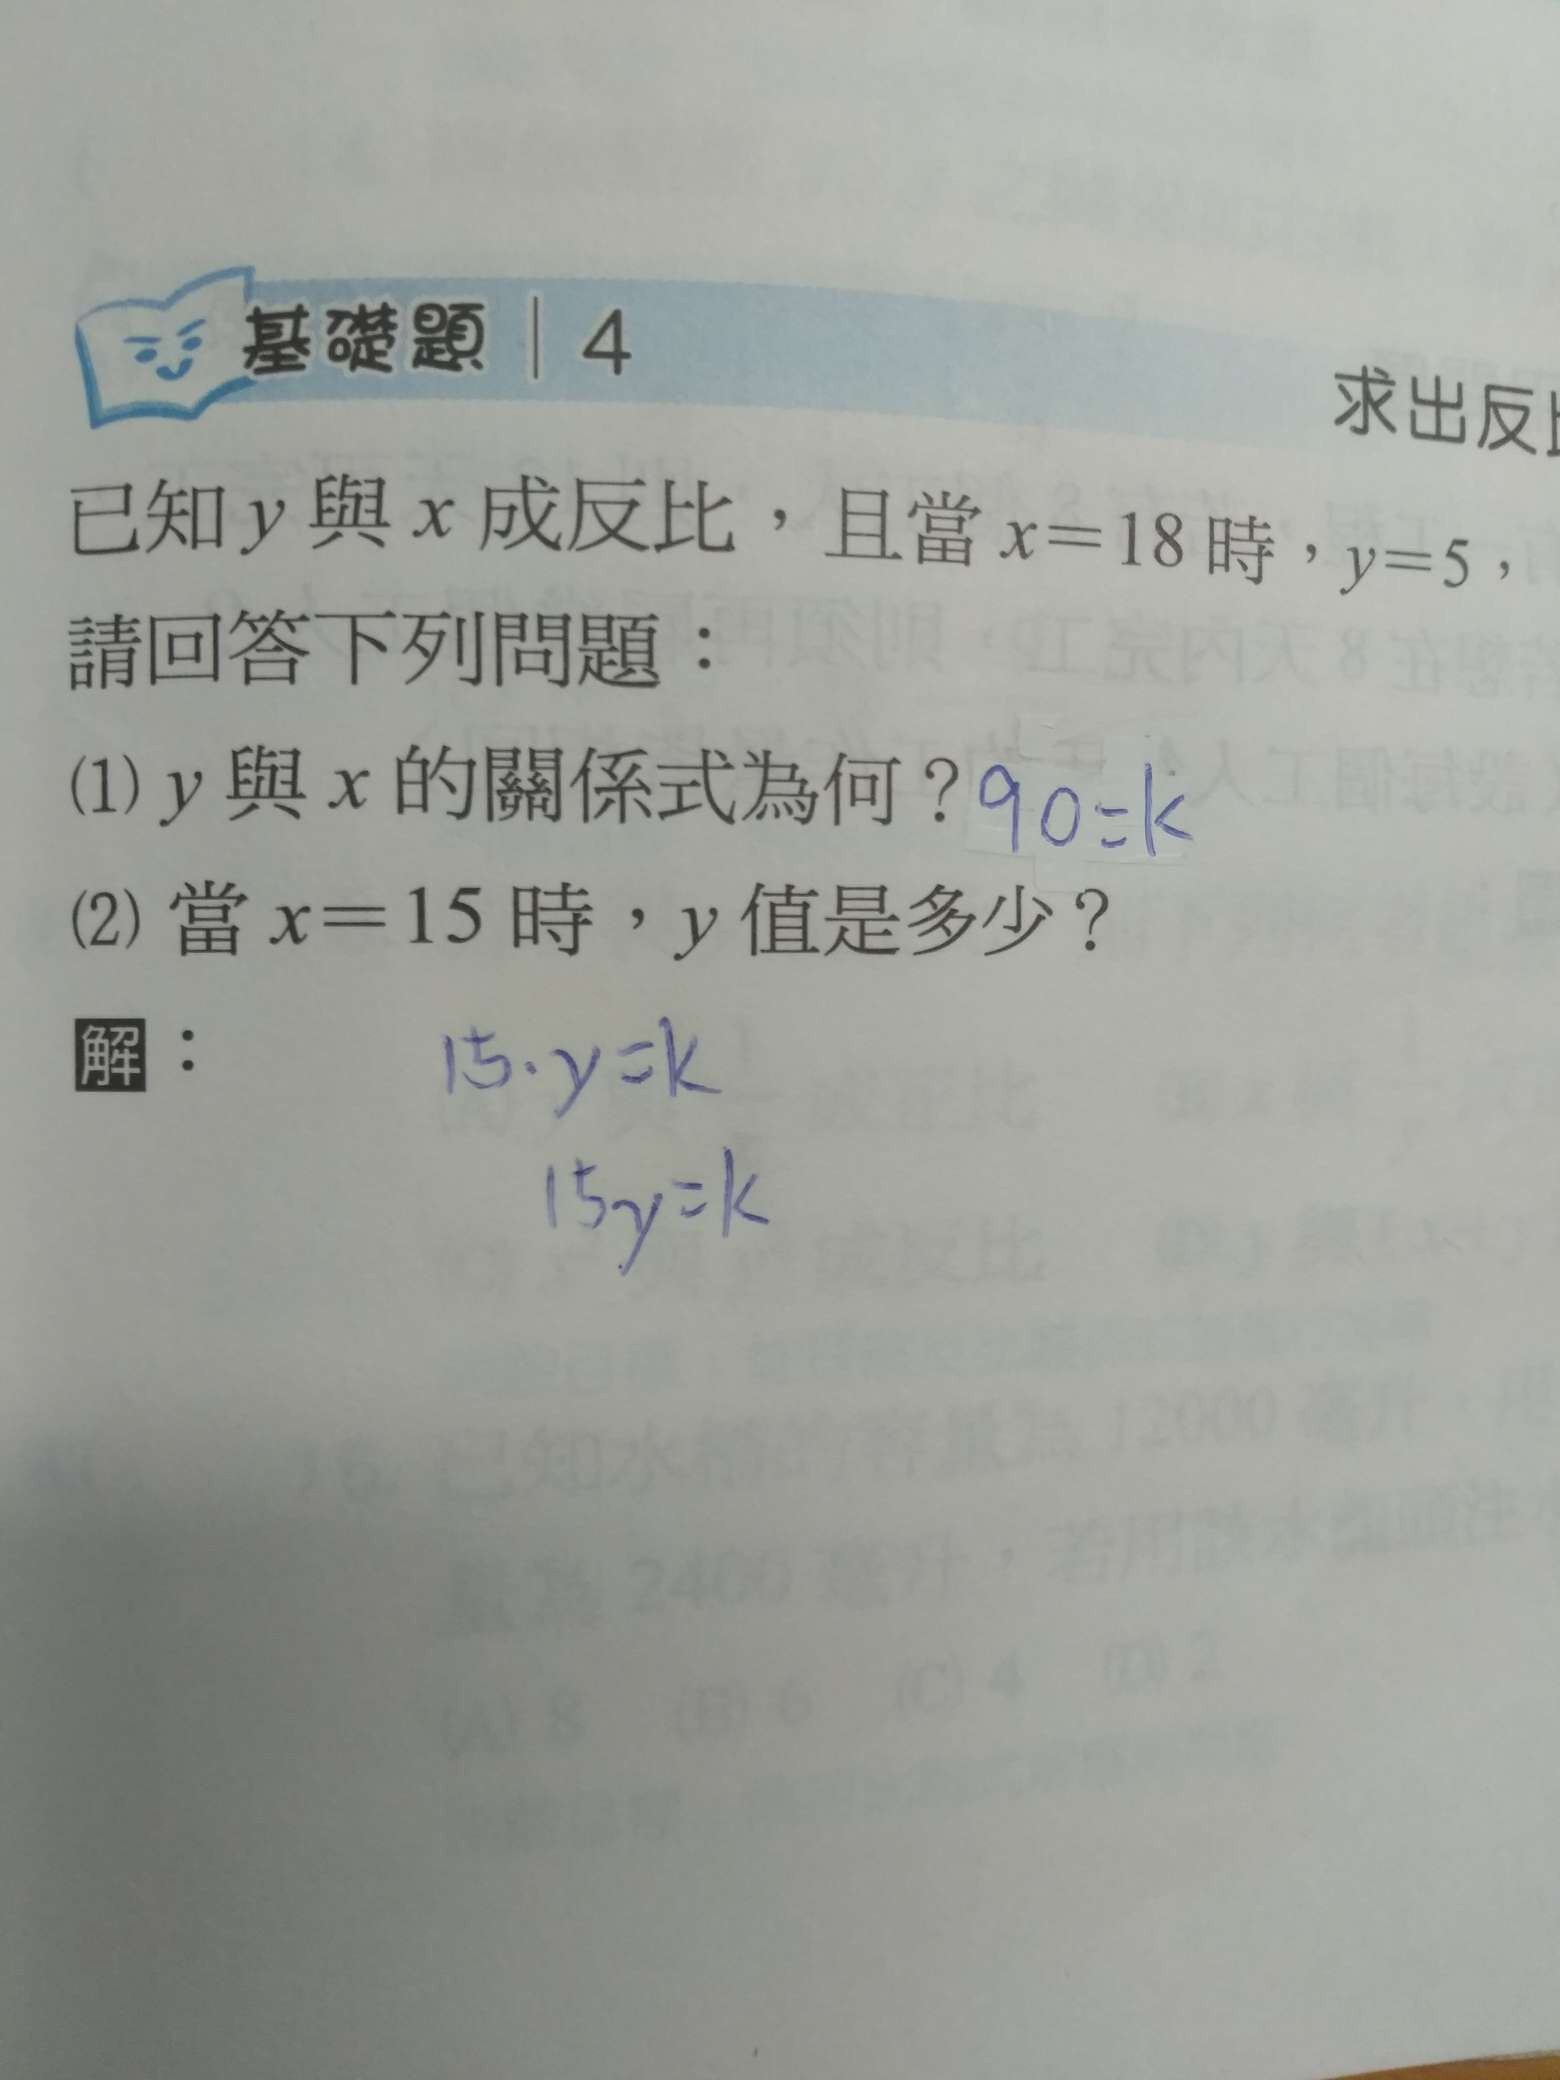 基礎題｜4
求出反
已知 y 與 x 成反比，且當 x＝18 時，y＝5，
請回答下列問題：
(1) y 與 x 的關係式為何？90=k
(2) 當 x＝15 時，y 值是多少？
解：
15·y=k
15y=k